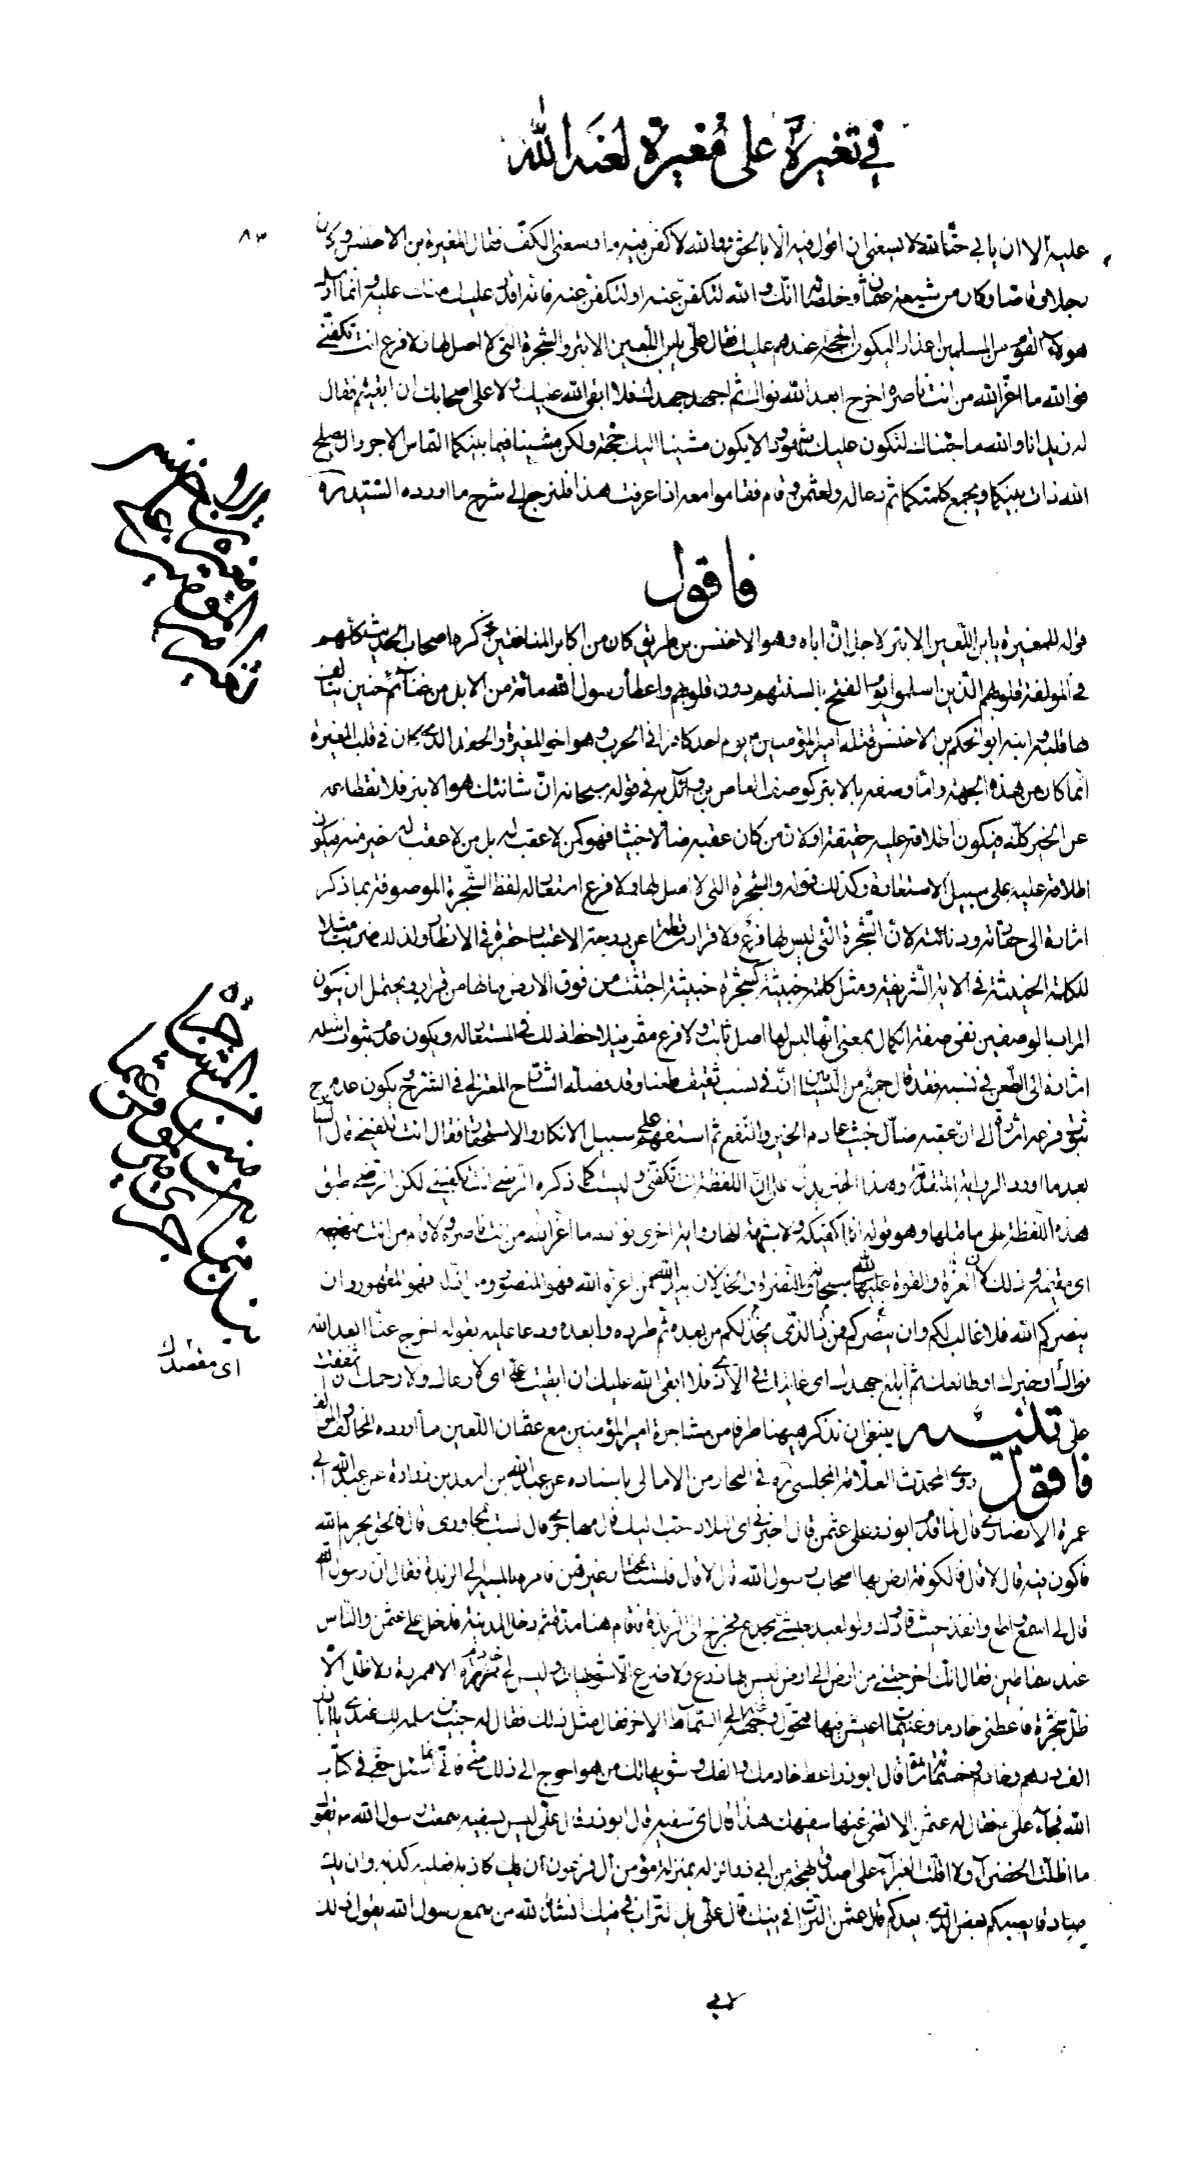 في تغيره على مغيرة لعنه الله
٨٣
عليه الا ان يابي حقا لله لا يسعني ان اقول فيه الا بالحق ووالله لاكفن فيه ما وسعني الكف فقال المغيرة بن الاخنس وكان
رجلا وقاحا وكان من شيعة عثمان وخلصائه انك والله لتكفن عنه او لتكفن عنه فانه اقدر عليك منك عليه وانما ارسل
هولاء القوم من المسلمين اعذارا ليكون الحجة عندهم عليك فقال علي يابن اللعين الابتر والشجرة التي لا اصل لها ولا فرع انت تكفني
فوالله ما اعز الله من انت ناصره اخرج ابعد الله نواك ثم اجهد جهدك فلا ابقى الله عليك ولا على اصحابك ان ابقيتم فقال
له زيد انا والله ما جئناك لنكون عليك شهودا ولا يكون مشينا اليك حجة ولكن مشينا فيما بينكما التماس الاجر وان يصلح
الله ذات بينكما ويجمع كلمتكما ثم دعا له ولعثمن وقام فقاموا معه اذا عرفت هذا فلنرجع الى شرح ما اورده السيد ره
فاقول
قوله للمغيرة يابن اللعين الابتر لاجل ان اباه وهو الاخنس بن طريق كان من اكابر المنافقين ذكره اصحاب الحديث كلهم
في المولفة قلوبهم الذين اسلموا يوم الفتح بالسنتهم دون قلوبهم واعطاه رسول الله مائة من الابل من غنائم حنين يتالف
بها قلبه وابنه ابو الحكم بن الاخنس قتله امير المؤمنين ع يوم احد كافرا في الحرب وهو اخو المغيرة والحقد الذي كان في قلب المغيرة
انما كان من هذه الجهة واما وصفه بالابتر كوصف العاص بن وائل به في قوله سبحانه ان شانئك هو الابتر فلانقطاعه
عن الخير كله فيكون اطلاقه عليه حقيقة او لان من كان عقبه ضالا خبيثا فهو كمن لا عقب له بل من لا عقب له خير منه فيكون
اطلاقه عليه على سبيل الاستعارة وكذلك قوله والشجرة التي لا اصل لها ولا فرع استعار له لفظ الشجرة الموصوفة بما ذكر
اشارة الى حقارته ودنائته لان الشجرة التي ليس لها فرع ولا قرار ساقطة عن درجة الاعتبار حقيرة في الانظار ولذلك ضرب مثلا
للكلمة الخبيثة في الاية الشريفة ومثل كلمة خبيثة كشجرة خبيثة اجتثت من فوق الارض مالها من قرار ويحتمل ان يكون
المراد بالوصفين نفي صفة الكمال بمعنى انها ليس لها اصل ثابت ولا فرع مثمر فيلاحظ ذلك في المستعار له ويكون عدم ثبوت اصله
اشارة الى الطعن في نسبه فقد قال جمع من النسابين ان في نسب ثقيف طعنا وقد فصله الشارح المعتزلي في الشرح ويكون عدم
ثبوت فرعه اشارة الى ان عقبه ضال خبيث عادم الخير والنفع ثم استفهم على سبيل الانكار والاستحقار فقال انت تكفيني قال السيد
بعد ما اورد الرواية المتقدمة وهذا الخبر يدل على ان اللفظة انت تكفني وليست كما ذكره الرضي انت تكفيني لكن الرضي طبق
هذه اللفظة على ما قبلها وهو قوله انا اكفيكه ولا شبهة انها رواية اخرى فوالله ما اعز الله من انت ناصره ولا قام من انت منهضه
اي مقيمه وذلك لان العزة والقوة لله سبحانه والنصرة والخذلان بيد الله فمن اعزه الله فهو المنصور ومن اذل فهو المقهور وان
ينصركم الله فلا غالب لكم وان يخذلكم فمن ذا الذي ينصركم من بعده ثم طرده وابعده ودعا عليه بقوله اخرج عنا ابعد الله
نواك او خيرك او طالعك ثم ابلغ جهدك اي غايتك في الاذى فلا ابقى الله عليك ان ابقيت علي اي لا رعاك ولا رحمك ان اشفقت
علي تنبيه ينبغي ان نذكر هيهنا طرفا من مشاجرة امير المؤمنين مع عثمان اللعين ما اورده المخالف والمؤالف
فاقول روى المحدث العلامة المجلسي ره في البحار من الامالي باسناده عن عبد الله بن اسعد بن زرارة عن عبد الله بن ابي
عمرة الانصاري قال لما قدم ابو ذر على عثمن قال اخبرني اي البلاد احب اليك قال مهاجري قال لست بمجاوري قال فالحق بحرم الله
فاكون فيه قال لا قال فالكوفة ارض بها اصحاب رسول الله قال لا قال فلست بمختار غيرهن فامره بالمسير الى الربذة فقال ان رسول الله
قال لي اسمع واطع وانفذ حيث قادوك ولو لعبد حبشي مجدع فخرج الى الربذة فاقام هنا مدة ثم دخل المدينة فدخل على عثمن والناس
عنده سماطين فقال انك اخرجتني من ارضي الى ارض ليس بها زرع ولا ضرع الا شويهات وليس لي خادم الا محررة ولا ظل الا
ظل شجرة فاعطني خادما وغنيمات اعيش فيها فتحول وجهه الى السماط الاخر فقال مثل ذلك فقال له حبيب بن سلمة لك عندي يا ابا ذر
الف درهم وخادم وخمسمائة شاة قال ابو ذر اعط خادمك والفك وشويهاتك من هو احوج الى ذلك مني فاني انما اسئل حقي في كتاب
الله فجاء علي ع فقال له عثمن الا تغني عنا سفيهك هذا قال اي سفيه قال ابو ذر قال علي ليس بسفيه سمعت رسول الله ص يقول
ما اظلت الخضراء ولا اقلت الغبراء على اصدق لهجة من ابي ذر انزله بمنزلة مؤمن ال فرعون ان يك كاذبا فعليه كذبه وان يك
صادقا يصبكم بعض الذي يعدكم قال عثمن التراب في فيك قال علي بل التراب في فيك انشد بالله من سمع رسول الله يقول ذلك
لابي
اي مقصدك